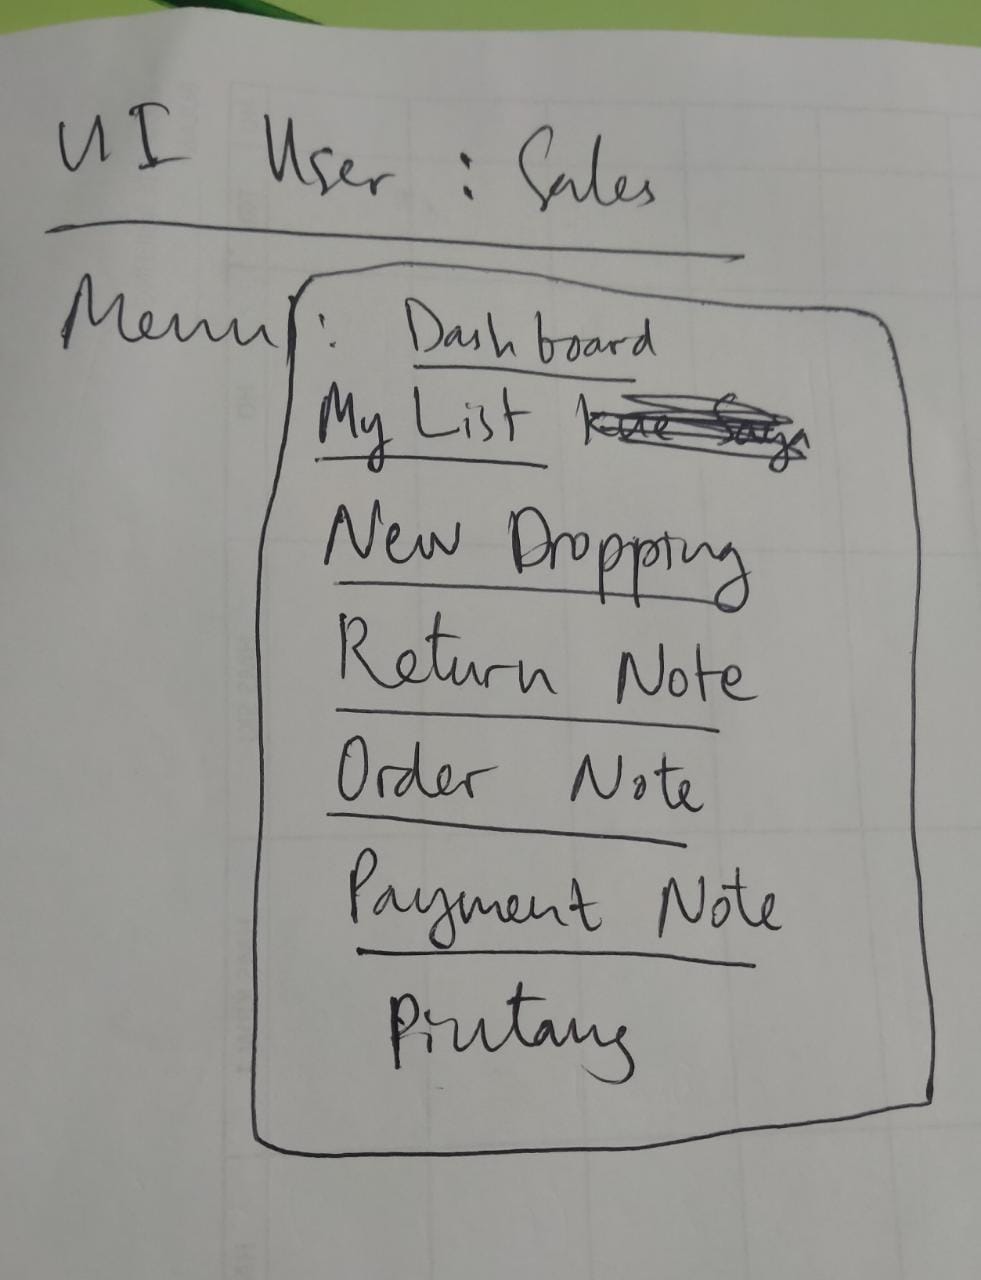 UI User : Sales
Menu : Dashboard
My List
New Dropping
Return Note
Order Note
Payment Note
Piutang